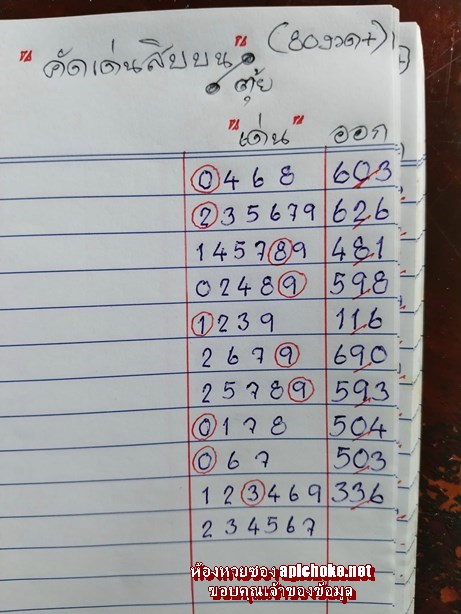 "คัดเด่นสิบบน" (80งวด+)
ตุ้ย
"เด่น" ออก
0468 603
235679 626
145789 481
02489 598
1239 116
2679 690
25789 593
0178 504
067 503
123469 336
234567
ห้องหวยซอง apichoke.net
ขอบคุณเจ้าของข้อมูล